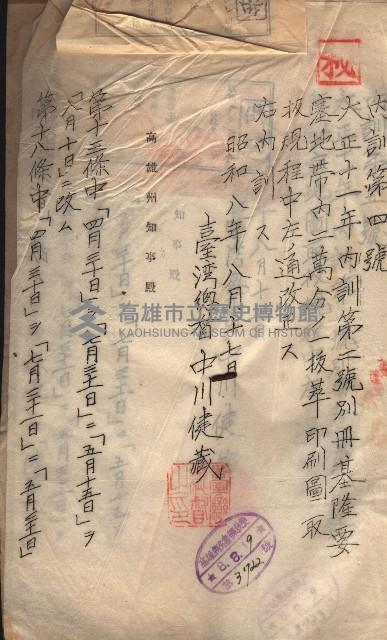 秘
内訓第四號
大正十一年内訓第二號別冊基隆要
塞地帶内二萬分一拔萃印刷圖取
扱規程中左ノ通改正ス
右内訓ス
昭和八年八月十七日
臺灣總督中川健藏
高雄州知事殿
第十三條中「四月三十日」ヲ「七月三十一日」ニ「五月十五日」ヲ
「八月十日」ニ改ム
第十八條中「四月三十日」ヲ「七月三十一日」ニ「五月三十一日」
8.8.9
第3722號
高雄市立歷史博物館
KAOHSIUNG MUSEUM OF HISTORY